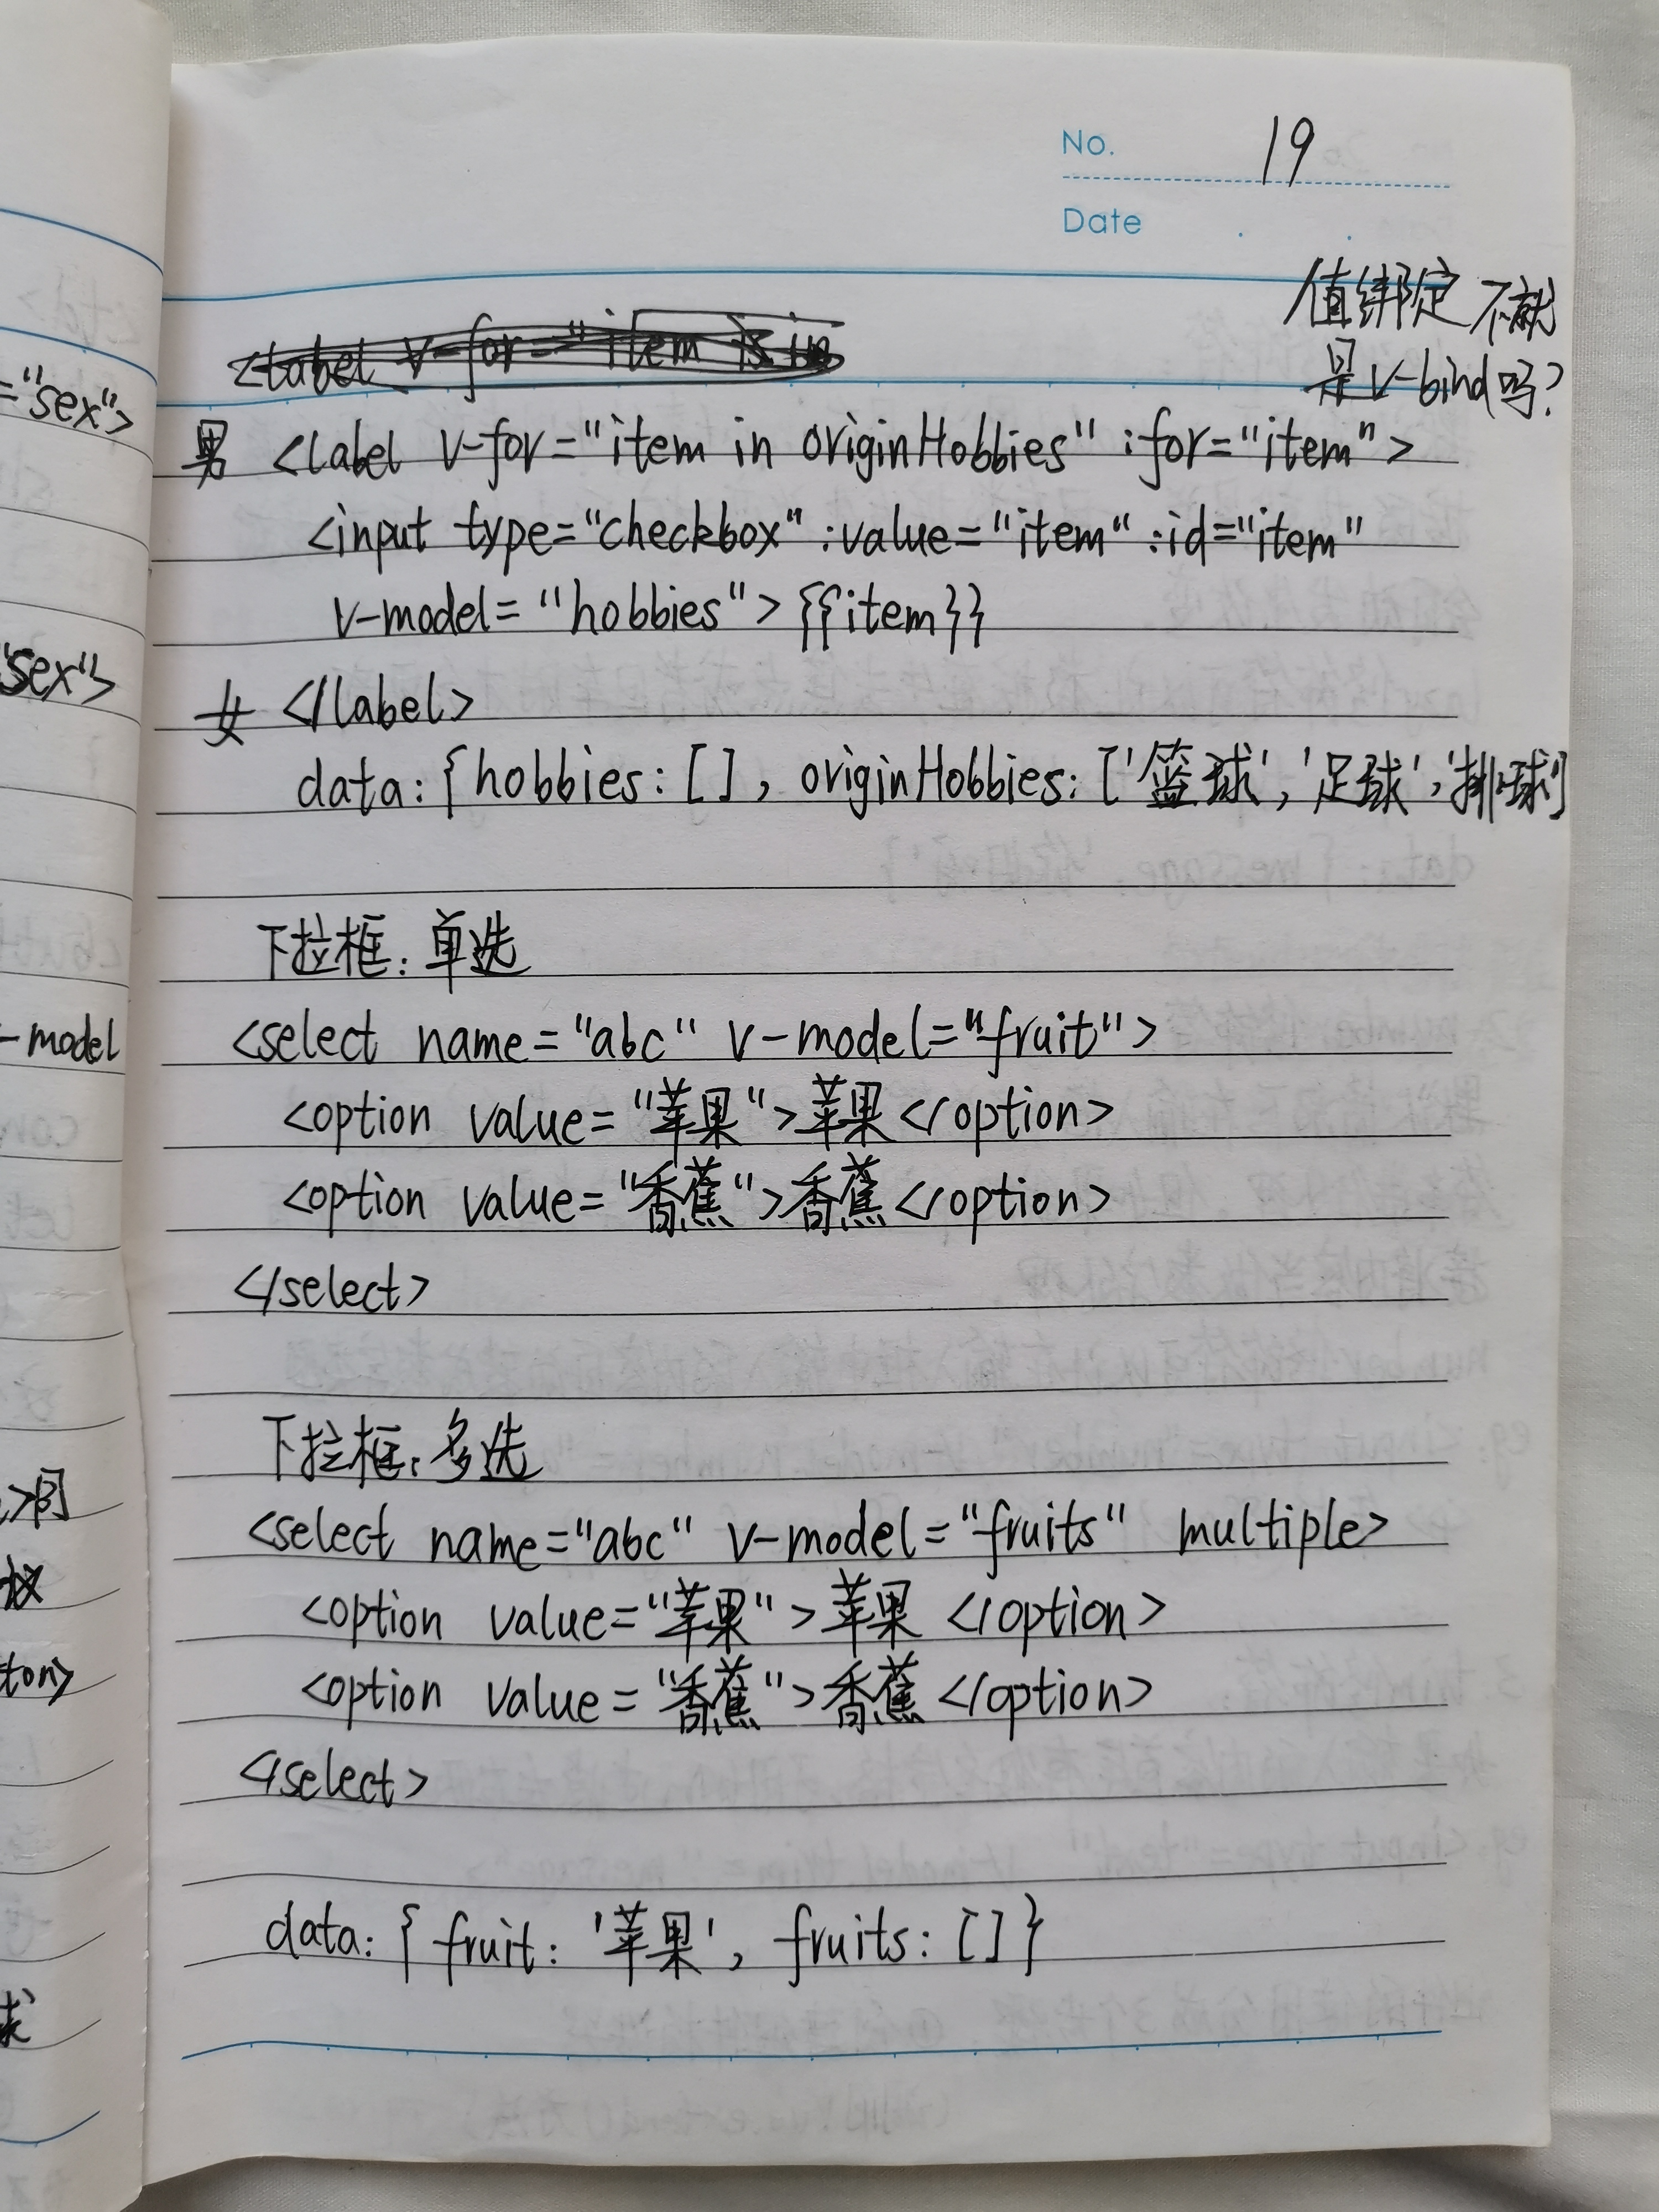 No. 19
Date
值绑定 不就
是v-bind吗?
男 <label v-for="item in originHobbies" :for="item">
<input type="checkbox" :value="item" :id="item"
v-model="hobbies">{{item}}
女 </label>
data: {hobbies: [], originHobbies: ['篮球', '足球', '排球']
下拉框: 单选
<select name="abc" v-model="fruit">
<option value="苹果">苹果</option>
<option value="香蕉">香蕉</option>
</select>
下拉框: 多选
<select name="abc" v-model="fruits" multiple>
<option value="苹果">苹果</option>
<option value="香蕉">香蕉</option>
</select>
data: {fruit: '苹果', fruits: []}
="sex">
"sex">
-model
>同
ton>
球